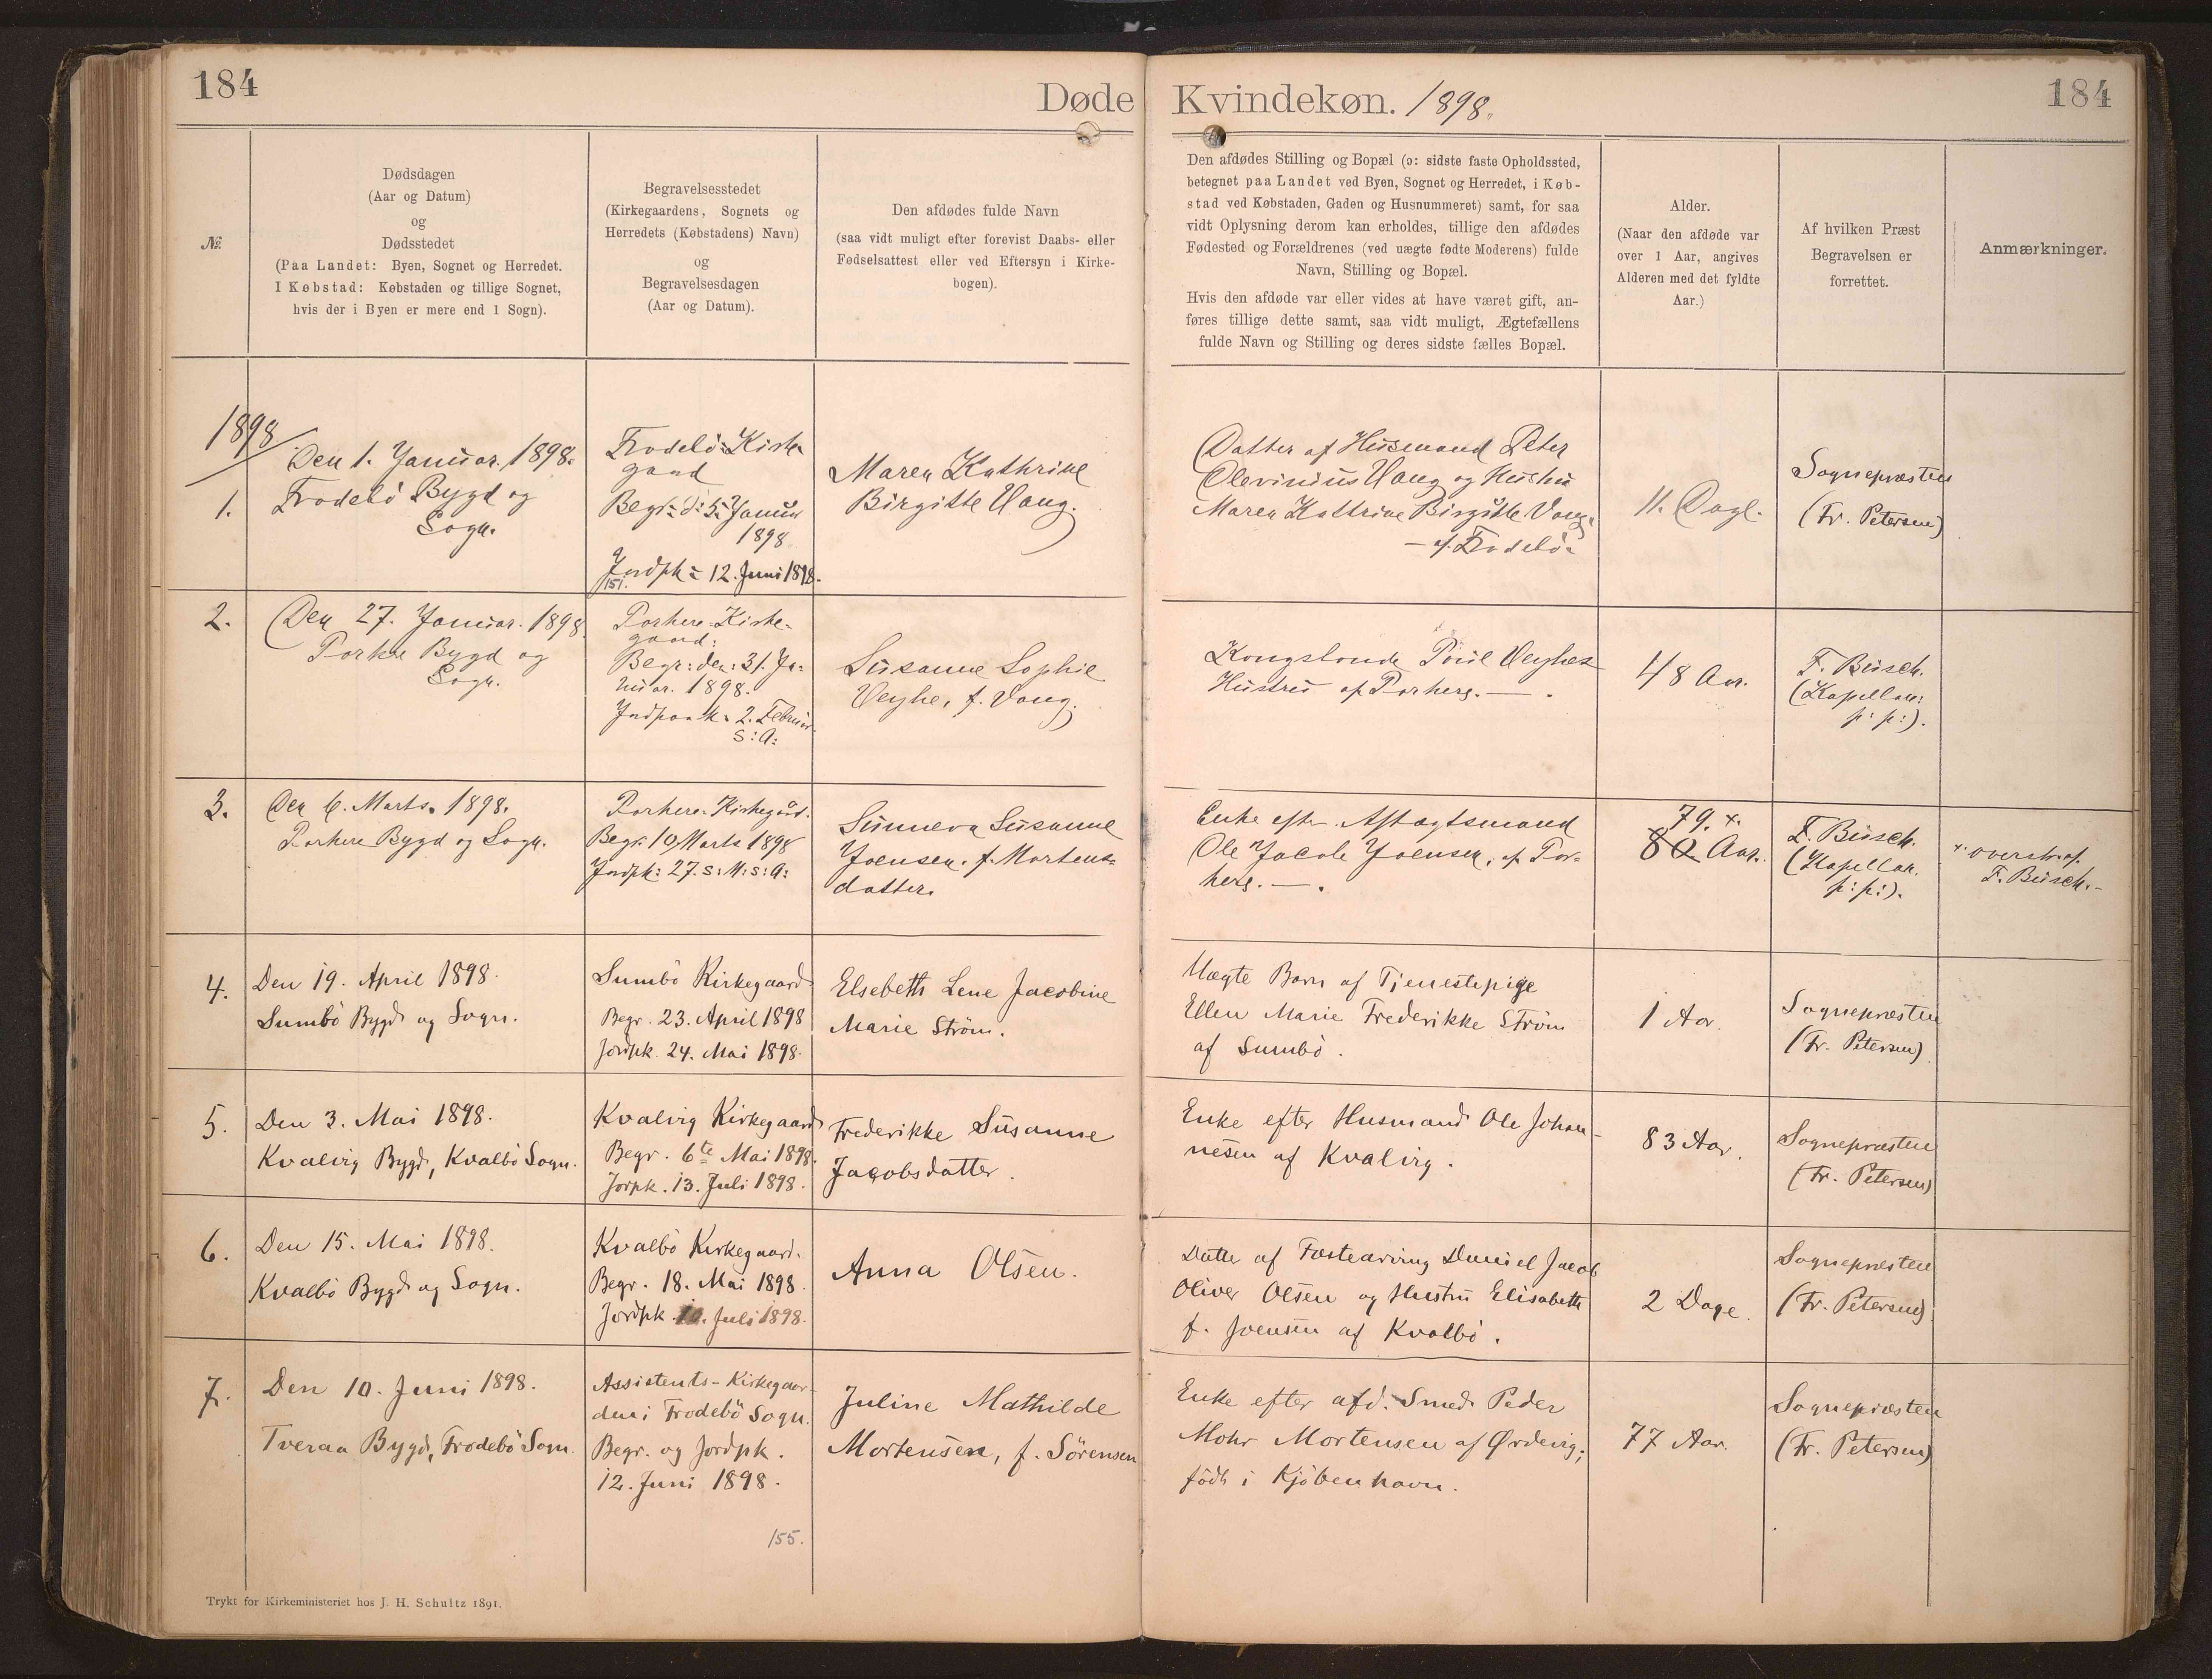 184
Døde
Kvindekøn. 1898.
184
№.
Dødsdagen
(Aar og Datum)
og
Dødsstedet
(Paa Landet: Byen, Sognet og Herredet.
I Købstad: Købstaden og tillige Sognet,
hvis der i Byen er mere end 1 Sogn).
Begravelsesstedet
(Kirkegaardens, Sognets og
Herredets (Købstadens) Navn)
og
Begravelsesdagen
(Aar og Datum).
Den afdødes fulde Navn
(saa vidt muligt efter forevist Daabs- eller
Fødselsattest eller ved Eftersyn i Kirke-
bogen).
Den afdødes Stilling og Bopæl (ɔ: sidste faste Opholdssted,
betegnet paa Landet ved Byen, Sognet og Herredet, i Køb-
stad ved Købstaden, Gaden og Husnummeret) samt, for saa
vidt Oplysning derom kan erholdes, tillige den afdødes
Fødested og Forældrenes (ved uægte fødte Moderens) fulde
Navn, Stilling og Bopæl.
Hvis den afdøde var eller vides at have været gift, an-
føres tillige dette samt, saa vidt muligt, Ægtefællens
fulde Navn og Stilling og deres sidste fælles Bopæl.
Alder.
(Naar den afdøde var
over 1 Aar, angives
Alderen med det fyldte
Aar.)
Af hvilken Præst
Begravelsen er
forrettet.
Anmærkninger.
1898
1.
Den 1. Januar. 1898.
Frodebö Bygd og
Sogn.
Frodebö Kirke
gaard
Begr: d: 5: Januar
1898
Jordpk: 12. Juni 1898.
151.
Maren Kathrine
Birgitte Vang.
Datter af Husmand Peter
Olevinius Vang og Hustru
Maren Kathrine Birgitte Vang.
— af Frodebö.
11. Dage.
Sognepræsten
(Fr. Petersen)
2.
Den 27. Januar. 1898
Porkere Bygd og
Sogn.
Porkere-Kirke-
gaard:
Begr: den: 31. Ja-
nuar. 1898.
Jordpaak. 2. Februar.
S: A:
Susanne Sophie
Veyhe, f. Vang.
Kongsbonde Poul Veyhes
Hustru af Porkere. — .
48 Aar.
F. Büsch.
(Kapellan:
p: p:).
3.
Den 6. Marts. 1898.
Porkere Bygd og Sogn.
Porkere-Kirkegård.
Begr. 10 Marts 1898
Jordpk: 27. S: M: s: A:
Sunneva Susanne
Joensen. f. Mortens-
datter.
Enke efter Aftægtsmand
Ole Jacob Joensen, af Por-
kere. — .
79. x.
80 Aar.
F. Büsch.
(Kapellan.
p: p:).
x. overstr. af.
F. Büsch. -
4.
Den 19. April 1898.
Sumbö Bygd og Sogn.
Sumbö Kirkegaard
Begr. 23. April 1898
Jordpk. 24. Mai 1898.
Elsebeth Lene Jacobine
Marie Ström.
Uægte Barn af Tjenestepige
Ellen Marie Frederikke Ström
af Sumbö.
1 Aar.
Sognepræsten
(Fr. Petersen)
5.
Den 3. Mai 1898.
Kvalvig Bygd, Kvalbö Sogn.
Kvalvig Kirkegaard
Begr. 6te Mai 1898.
Jorpk. 13. Juli 1898.
Frederikke Susanne
Jacobsdatter.
Enke efter Husmand Ole Johan-
nesen af Kvalvig.
83 Aar.
Sognepræsten
(Fr. Petersen)
6.
Den 15. Mai 1898.
Kvalbö Bygd og Sogn.
Kvalbö Kirkegaard.
Begr. 18. Mai 1898.
Jordpk. 10. Juli 1898.
Anna Olsen.
Datter af Fæstearving Daniel Jacob
Oliver Olsen og Hustru Elisabeth
f. Joensen af Kvalbö.
2 Dage.
Sognepræsten
(Fr. Petersen)
7.
Den 10. Juni 1898.
Tveraa Bygd, Frodebö Sogn.
Assistents-Kirkegaar-
den i Frodebö Sogn.
Begr. og Jordpk.
12. Juni 1898.
155.
Juline Mathilde
Mortensen, f. Sörensen
Enke efter afd. Smed Peder
Mohr Mortensen af Ørdevig;
født i Kjöbenhavn.
77 Aar.
Sognepræsten
(Fr. Petersen)
Trykt for Kirkeministeriet hos J. H. Schultz 1891.